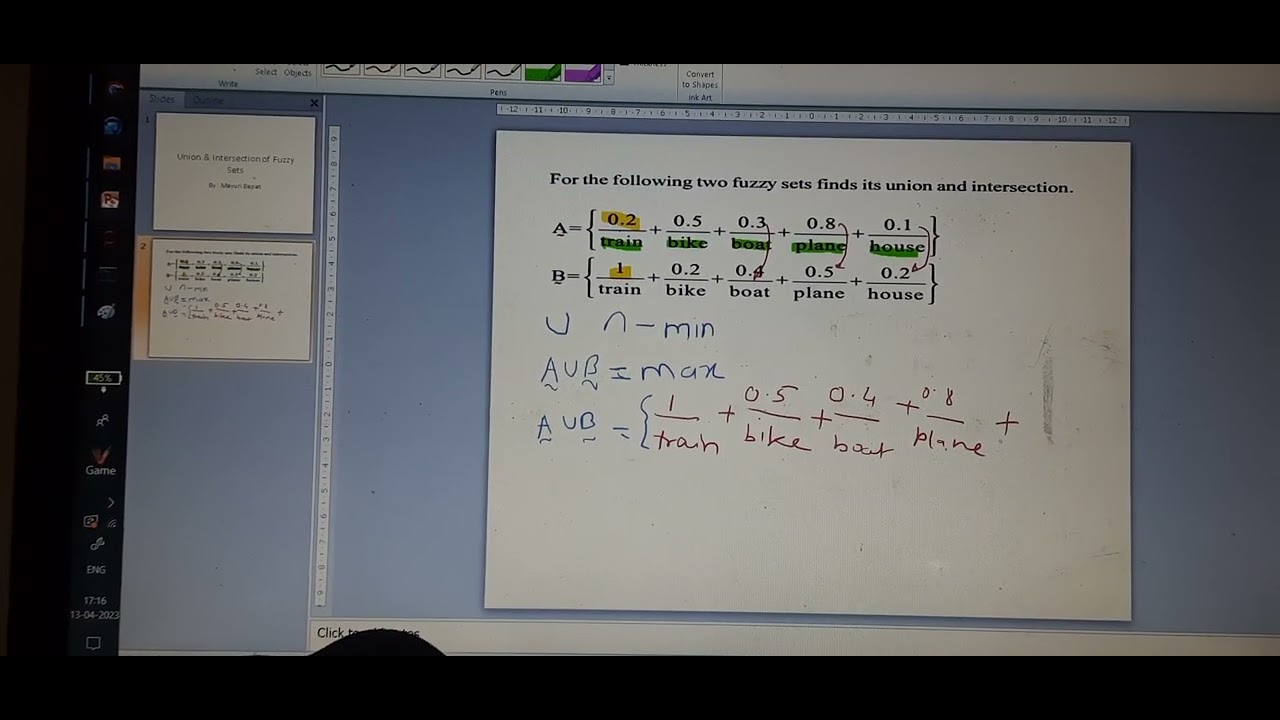 Select Objects
Write
Pens
Convert
to Shapes
Ink Art
Slides Outline
1
Union & Intersection of Fuzzy
Sets
By Mayuri Bapat
2
For the following two fuzzy sets finds its union and intersection.
A={0.2/train + 0.5/bike + 0.3/boat + 0.8/plane + 0.1/house}
B={1/train + 0.2/bike + 0.4/boat + 0.5/plane + 0.2/house}
∪ ∩ - min
A∪B = max
A∪B = {1/train + 0.5/bike + 0.4/boat + 0.8/plane +
45%
Game
ENG
17:16
13-04-2023
Click to